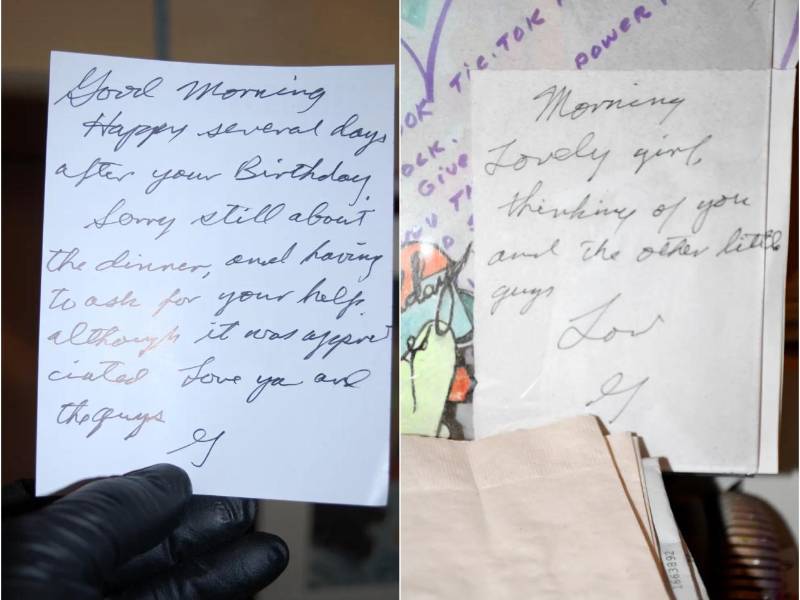 Good Morning
Happy several days
after your Birthday.
Sorry still about
the dinner, and having
to ask for your help.
although it was appre
ciated Love ya and
the guys
G
TIC.TOK
POWER
OCK.
GIVE
day
Morning
Lovely girl,
thinking of you
and the other little
guys
Lov
G
1663892